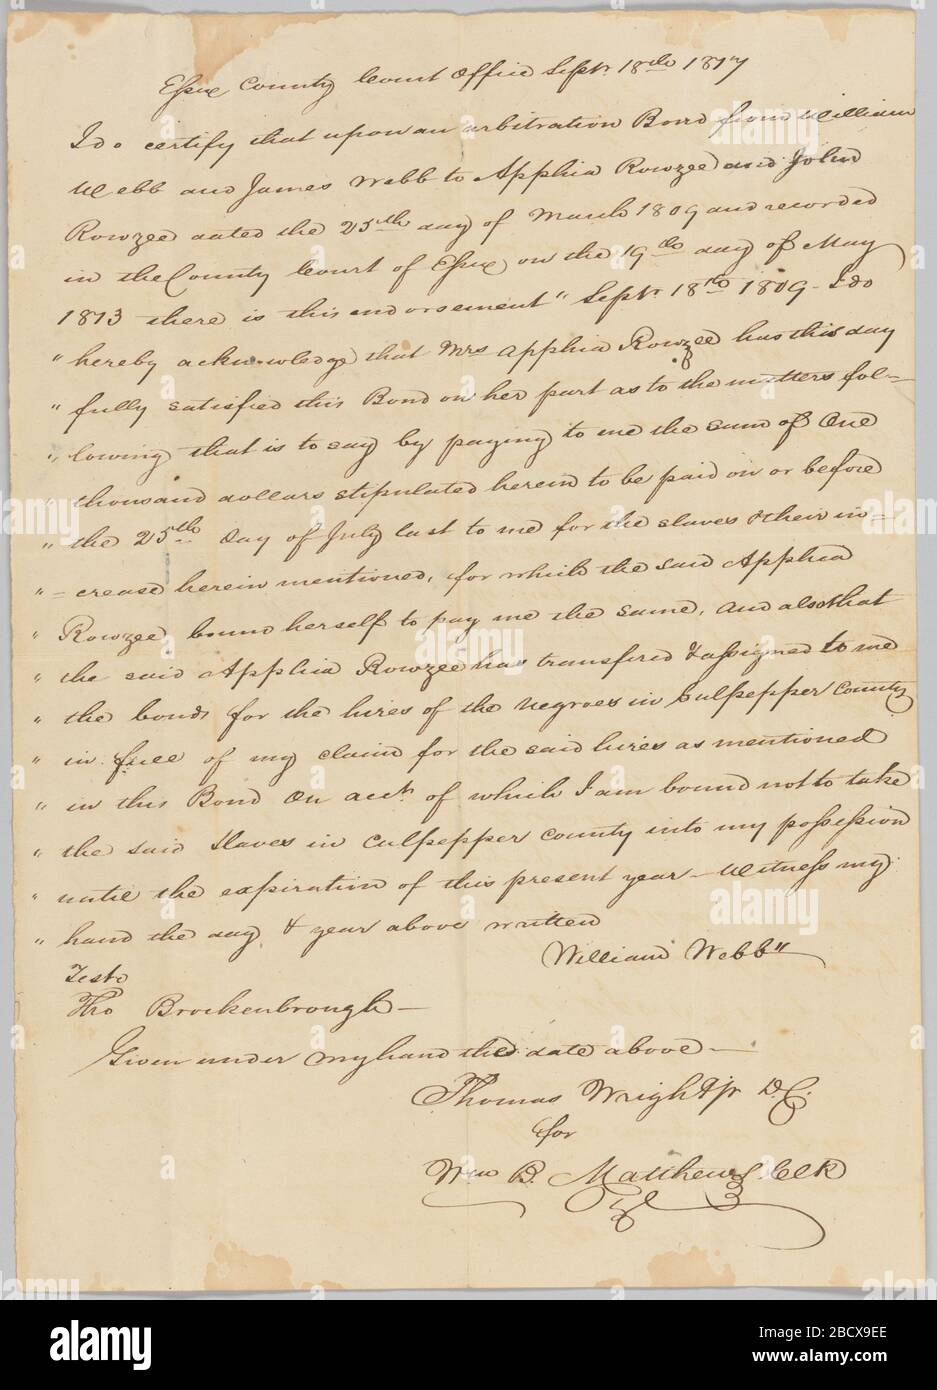 Essex County Court Office Septr. 18th 1817
I do certify that upon an arbitration Bond from William
Webb and James Webb to Apphia Rowzee and John
Rowzee dated the 25th day of March 1809 and recorded
in the County Court of Essex on the 19th day of May
1813 there is this endorsement " Septr. 18th 1809 - I do
" hereby acknowledge that Mrs Apphia Rowzee has this day
" fully satisfied this Bond on her part as to the matters fol=
" lowing that is to say by paying to me the sum of One
" thousand dollars stipulated herein to be paid on or before
" the 25th day of July last to me for the slaves & their in=
" = crease herein mentioned, for which the said Apphia
" Rowzee bound herself to pay me the same, and also that
" the said Apphia Rowzee has transferd & assigned to me
" the bonds for the hires of the negroes in Culpepper County
" in full of my claim for the said hires as mentioned
" in this Bond On acct. of which I am bound not to take
" the said slaves in Culpepper County into my possession
" until the expiration of this present year - Witness my
" hand the day & year above written
William Webb"
Teste
Tho Brockenbrough -
Given under my hand the date above -
Thomas Wright jr D.C.
for
Wm B. Matthews Clk
alamy
Image ID: 2BCX9EE
www.alamy.com